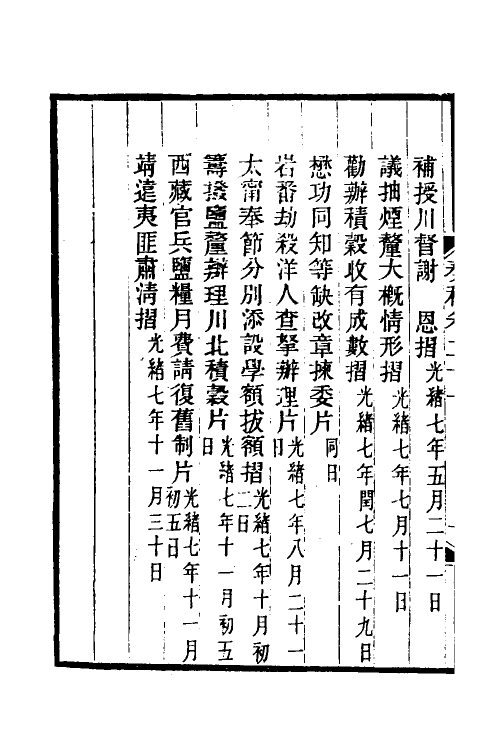 補授川督謝 恩摺光緒七年五月二十一日
議抽煙釐大概情形摺光緒七年七月十一日
勸辦積穀收有成數摺光緒七年閏七月二十九日
懋功同知等缺改章揀委片同日
岩番劫殺洋人查拏辦理片光緒七年八月二十一日
太甯奉節分別添設學額拔額摺光緒七年十月初二日
籌撥鹽釐辦理川北積穀片光緒七年十一月初五日
西藏官兵鹽糧月費請復舊制片光緒七年十一月初五日
靖遠夷匪肅清摺光緒七年十一月三十日